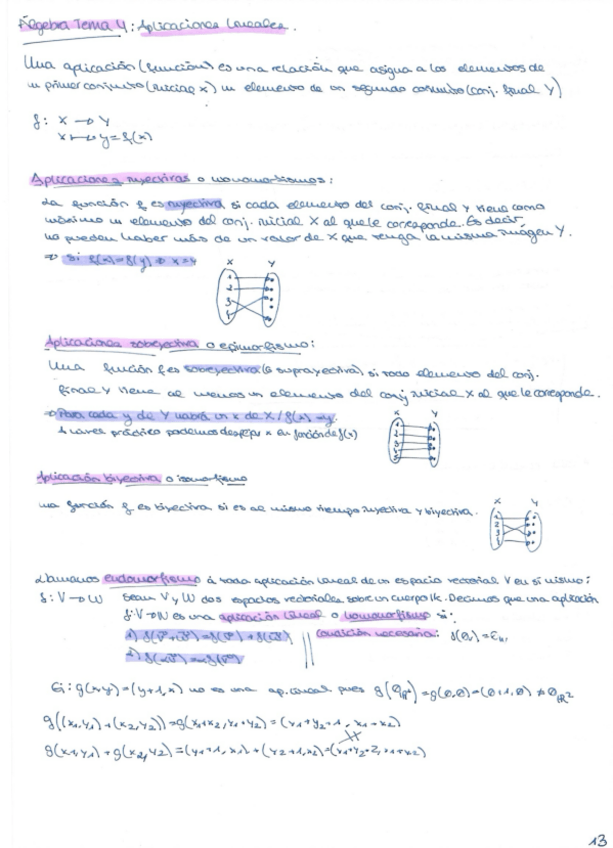 Álgebra Tema 4: Aplicaciones Lineales.
Una aplicación (función) es una relación que asigna a los elementos de
un primer conjunto (inicial X) un elemento de un segundo conjunto (conj. final Y)
f: X → Y
x → y = f(x)
Aplicaciones inyectivas o monomorfismos:
La función f es inyectiva si cada elemento del conj. final Y tiene como
máximo un elemento del conj. inicial X al que le corresponde. Es decir,
no pueden haber más de un valor de X que tenga la misma imágen Y.
⇒ Si f(x)=f(y) ⇒ x=y
X Y
1
2
3
4
Aplicaciones sobreyectiva o epimorfismo:
Una función f es sobreyectiva (o suprayectiva) si todo elemento del conj.
final Y tiene al menos un elemento del conj inicial X al que le corresponde.
⇒ Para cada y de Y habrá un x de X / f(x) = y.
A nivel práctico podemos despejar x en función de f(x)
X Y
1
2
3
4
5
Aplicación biyectiva o isomorfismo
una función f es biyectiva si es al mismo tiempo inyectiva y biyectiva.
X Y
1
2
3
4
Llamamos endomorfismo á toda aplicación lineal de un espacio vectorial V en sí mismo:
f: V → W Sean V y W dos espacios vectoriales sobre un cuerpo K. Decimos que una aplicación
f: V → W es una aplicación lineal o homomorfismo si:
1) f(v⃗+w⃗)=f(v⃗)+f(w⃗) || Condición necesaria:
2) f(αv⃗)=αf(v⃗)
Ej: g(x,y)=(y+1,x) no es una ap. lineal pues g(0ℝ²)=g(0,0)=(0+1,0)≠0ℝ²
g((x₁,y₁)+(x₂,y₂))=g(x₁+x₂,y₁+y₂)=(y₁+y₂+1, x₁+x₂)
≠
g(x₁,y₁)+g(x₂,y₂)=(y₁+1,x₁)+(y₂+1,x₂)=(y₁+y₂+2,x₁+x₂)
13